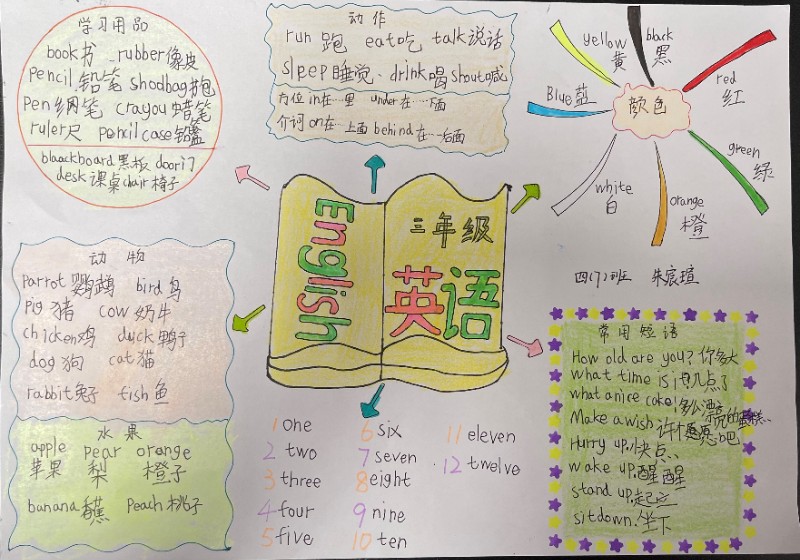 学习用品
book书 rubber橡皮
pencil铅笔 shodbag书包
pen钢笔 crayou蜡笔
ruler尺 pencil case铅盒
blaackboard黑板 door门
desk课桌 chair椅子
动作
run 跑 eat吃 talk说话
sleep睡觉、drink喝 shout喊
方位 in在…里 under在…下面
介词 on在…上面 behind在…后面
颜色
yellow
黄
black
黑
red
红
Blue蓝
green
绿
white
白
orange
橙
English
三年级
英语
四(7)班 朱宸瑄
动物
parrot 鹦鹉 bird鸟
pig 猪 cow 奶牛
chicken鸡 duck鸭子
dog 狗 cat猫
rabbit兔子 fish鱼
水果
apple pear orange
苹果 梨 橙子
banana香蕉 Peach桃子
1 one
2 two
3 three
4 four
5 five
6 six
7 seven
8 eight
9 nine
10 ten
11 eleven
12 twelve
常用短语
How old are you? 你多大
what time is it?几点了
what a nice cake!多么漂亮的蛋糕
Make a wish.许个愿吧
Hurry up.快点
wake up.醒醒
stand up.起立
sit down.坐下